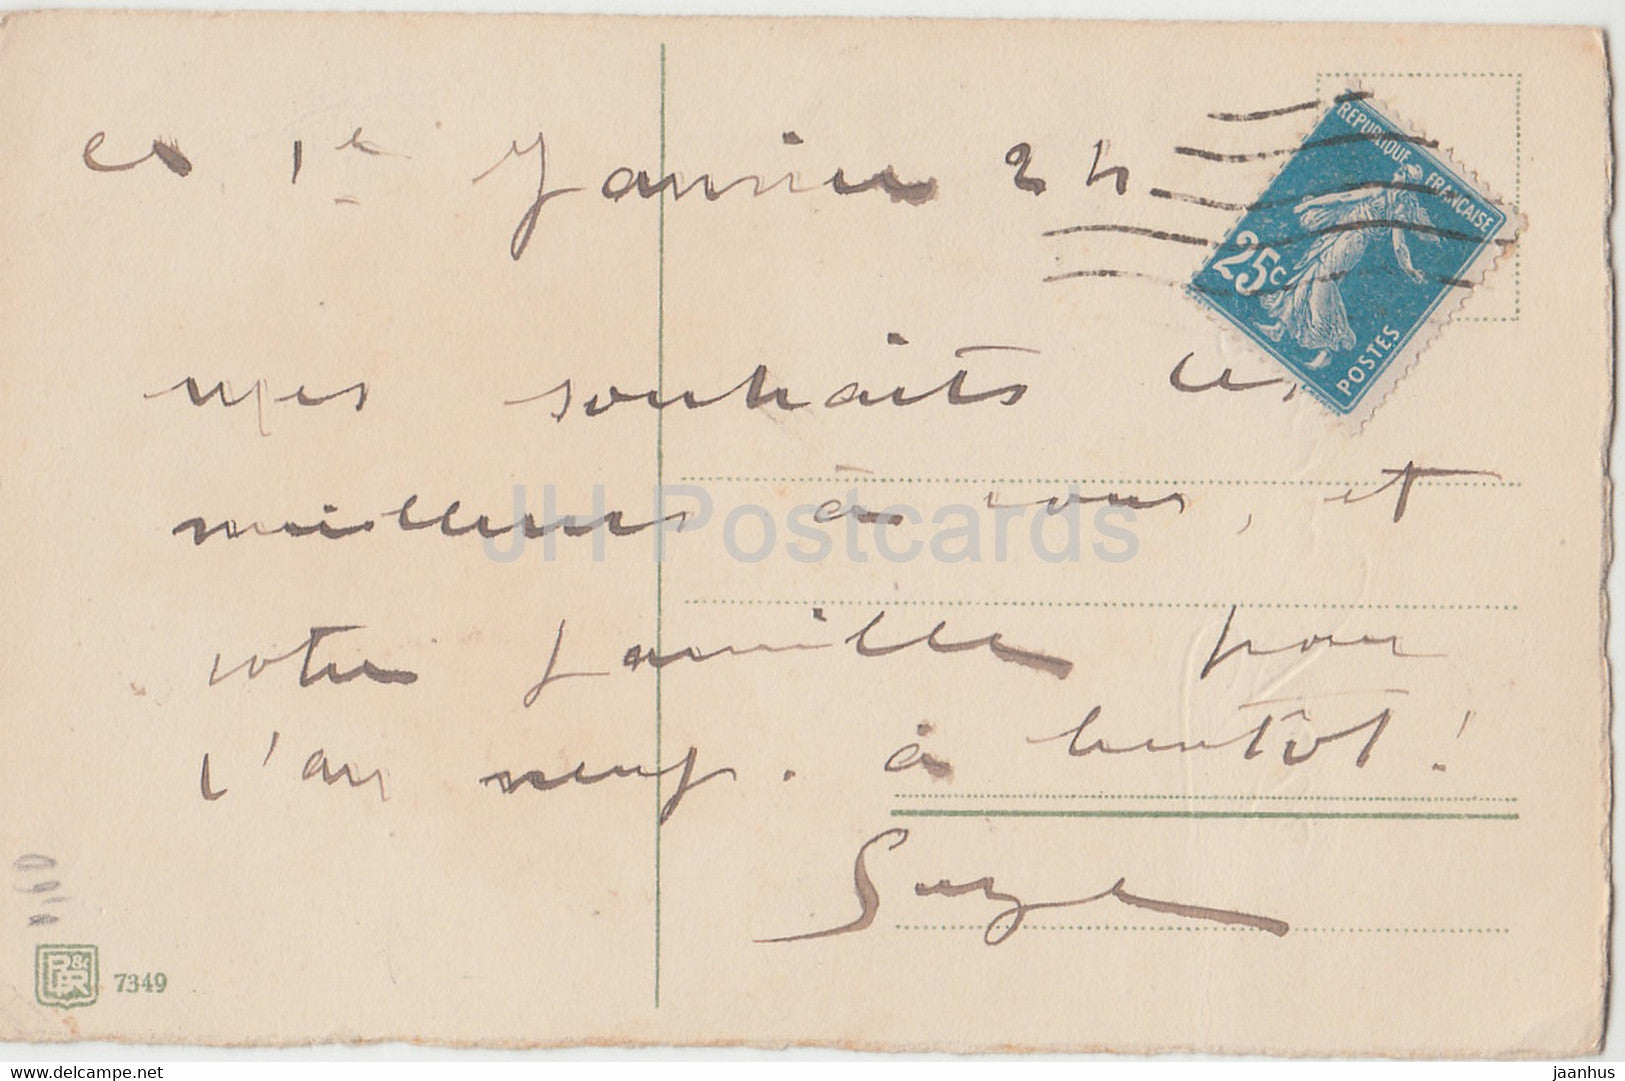 ce 1e Janvier 24
REPUBLIQUE FRANCAISE
25c
POSTES
mes souhaits les
meilleurs à vous, et
votre famille pour
l'an neuf. à bientôt !
Suze
JH Postcards
P&R
7349
delcampe.net
jaanhus